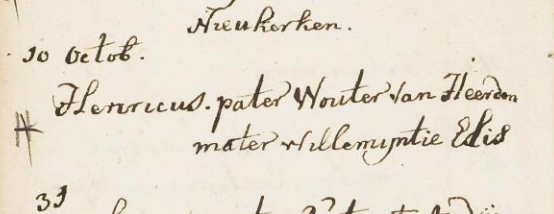 Nieukerken.
10 Octob.
Henricus. pater Wouter van Heerden
mater Willemijntie Elis
31